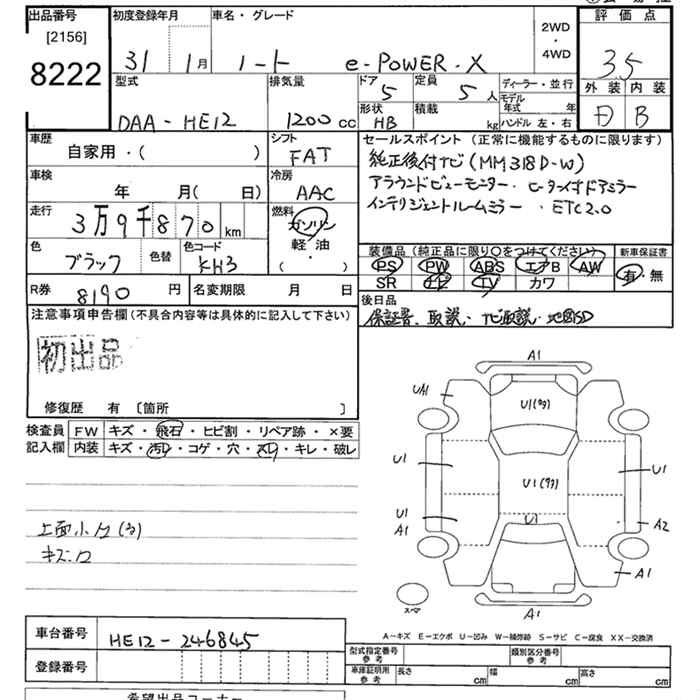 出品番号
[2156]
8222
初度登録年月
31 1月
車名・グレード
ノート e-POWER・X
2WD
・
4WD
評価点
3.5
外装 内装
D B
型式
DAA-HE12
排気量
1200cc
ドア
5
定員
5人
形状
HB
積載
kg
ディーラー・並行
モデル年式 年
ハンドル 左・右
車歴
自家用・( )
シフト
FAT
車検
年 月( 日)
冷房
AAC
走行
3万9千870km
燃料
ガソリン
軽・油
( ・ )
色
ブラック
色替
色コード
KH3
R券
8190円
名変期限 月 日
セールスポイント (正常に機能するものに限ります)
純正後付ナビ(MM318D-W)
アラウンドビューモニター・ヒーター付ドアミラー
インテリジェントルームミラー・ETC2.0
装備品(純正品に限り〇をつけてください)
PS PW ABS エアB AW
SR ナビ TV カワ
新車保証書
有・無
後日品
保証書、取説・ナビ取説・地図SD
注意事項申告欄(不具合内容等は具体的に記入して下さい)
初出品
修復歴 有 〔箇所 〕
検査員
記入欄
FW キズ・飛石・ヒビ割・リペア跡・×要
内装 キズ・汚レ・コゲ・穴・スレ・キレ・破レ
上面小凹(多)
キズ凹
A1
UA1
U1(多)
U1
U1(多)
U1
U1
A1
U1
A2
A1
A1
スペア
A−キズ E−エクボ U−凹み W−補修跡 S−サビ C−腐食 XX−交換済
車台番号
HE12-246845
登録番号
型式指定番号
参考
類別区分番号
参考
車庫証明用
参考
長さ cm 幅 cm 高さ cm
希望出品コーナー